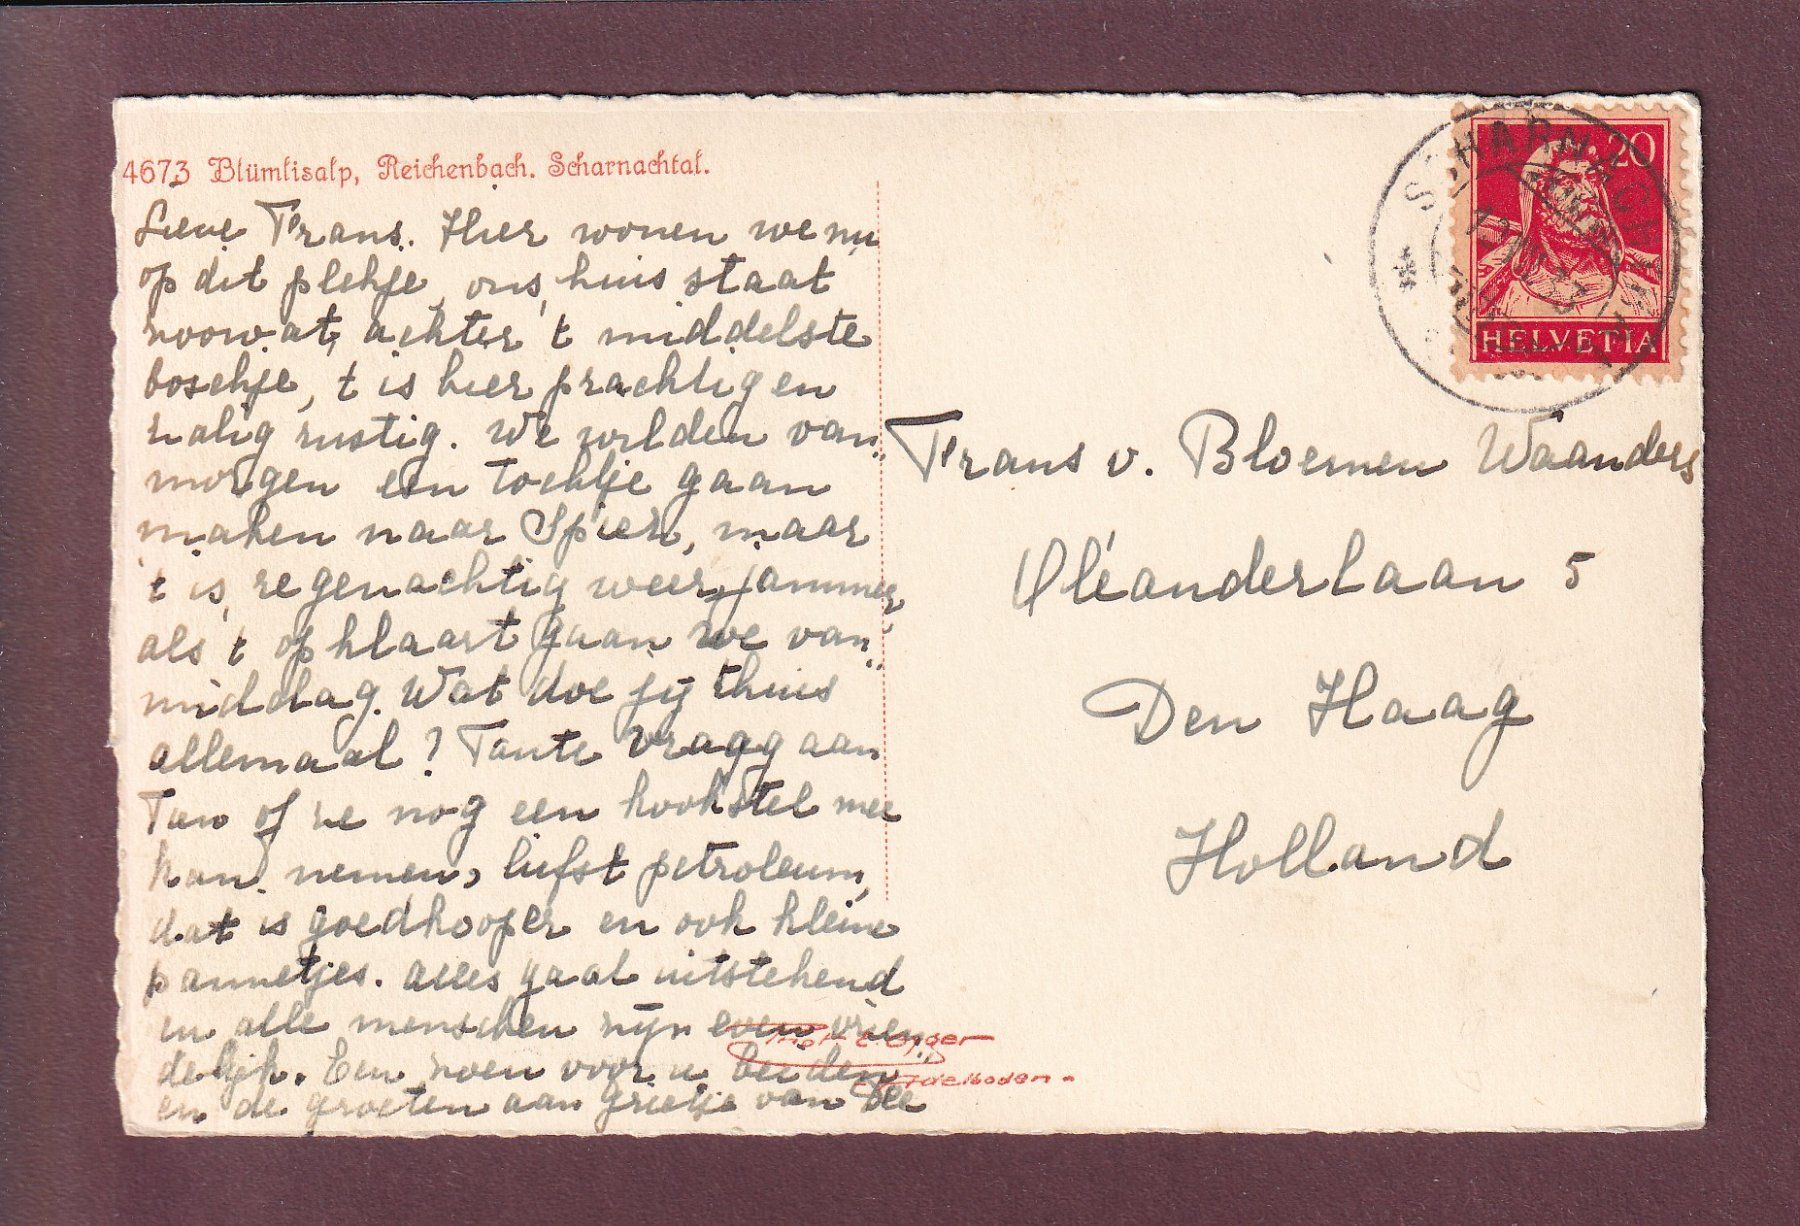 4673 Blümlisalp, Reichenbach. Scharnachtal.
Lieve Frans. Hier wonen we nu
op dit plekje, ons huis staat
zoowat achter 't middelste
boschje, 't is hier prachtig en
zalig rustig. We wilden van„
morgen een tochtje gaan
maken naar Spiez, maar
't is regenachtig weer, jammer,
als 't opklaart gaan we van„
middag. Wat doe jij thuis
allemaal? Tante vraagg aan
of ze nog een kookstel mee
kan nemen, liefst petroleum,
dat is goedkooper en ook kleine
pannetjes. Alles gaat uitstekend
en alle menschen zijn even vrien„
delijk. Een zoen voor u beiden
en de groeten aan Grietje van
Adelboden.
20
HELVETIA
SCHARNACHTAL
Frans v. Bloemen Waanders
Oléanderlaan 5
Den Haag
Holland